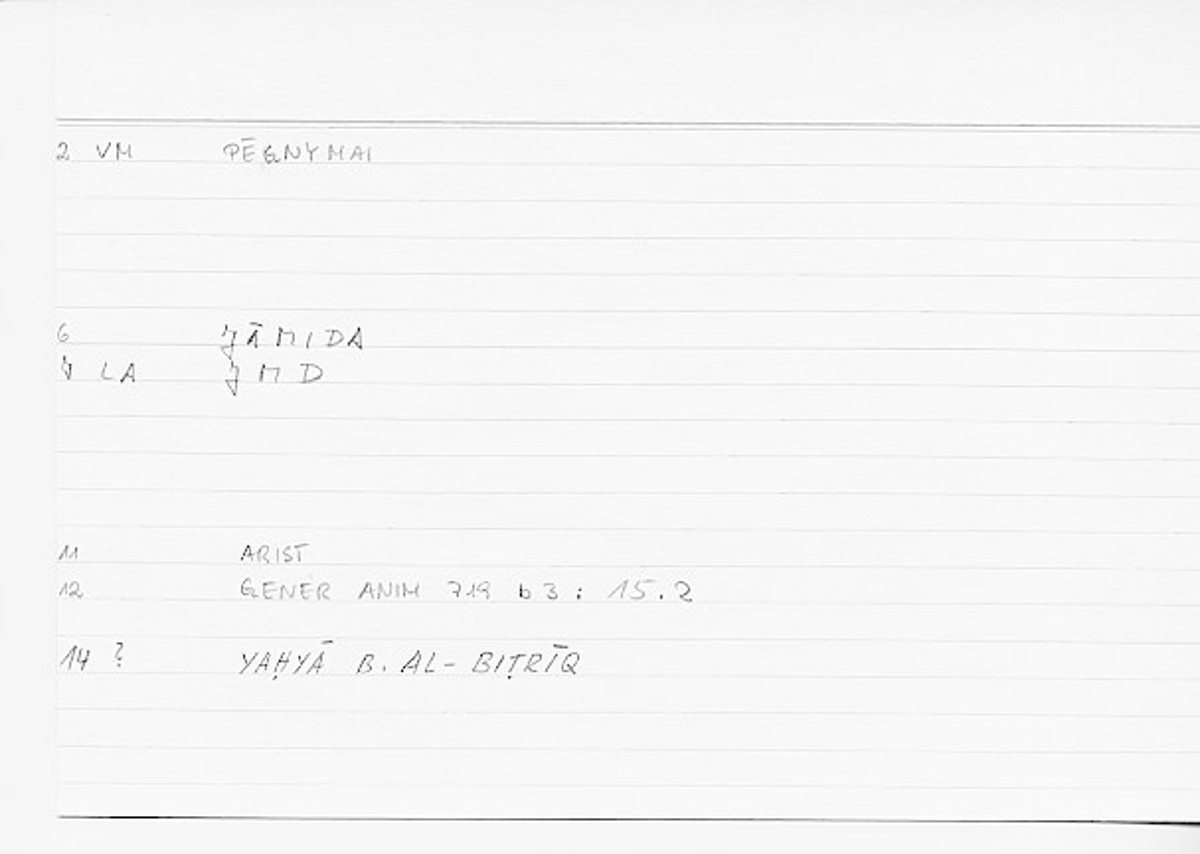 2 VM PĒGNYMAI
6 JĀMIDA
7 LA JMD
11 ARIST
12 GENER ANIM 719 b 3 : 15.2
14 ? YAḤYĀ B. AL-BIṬRĪQ